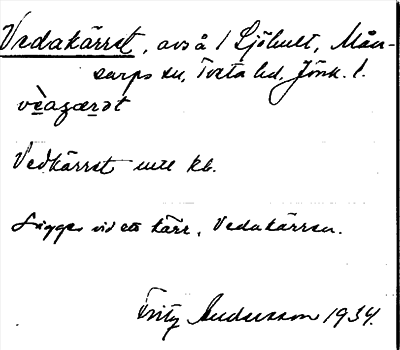 Vedakärret, avs å 1 Sjöhult, Mån-
sarps sn, Tveta hd, Jönk. l.
Vedkärret enl kb.
Ligger vid ett kärr, Vedakärren.
Fritz Andersson 1934.